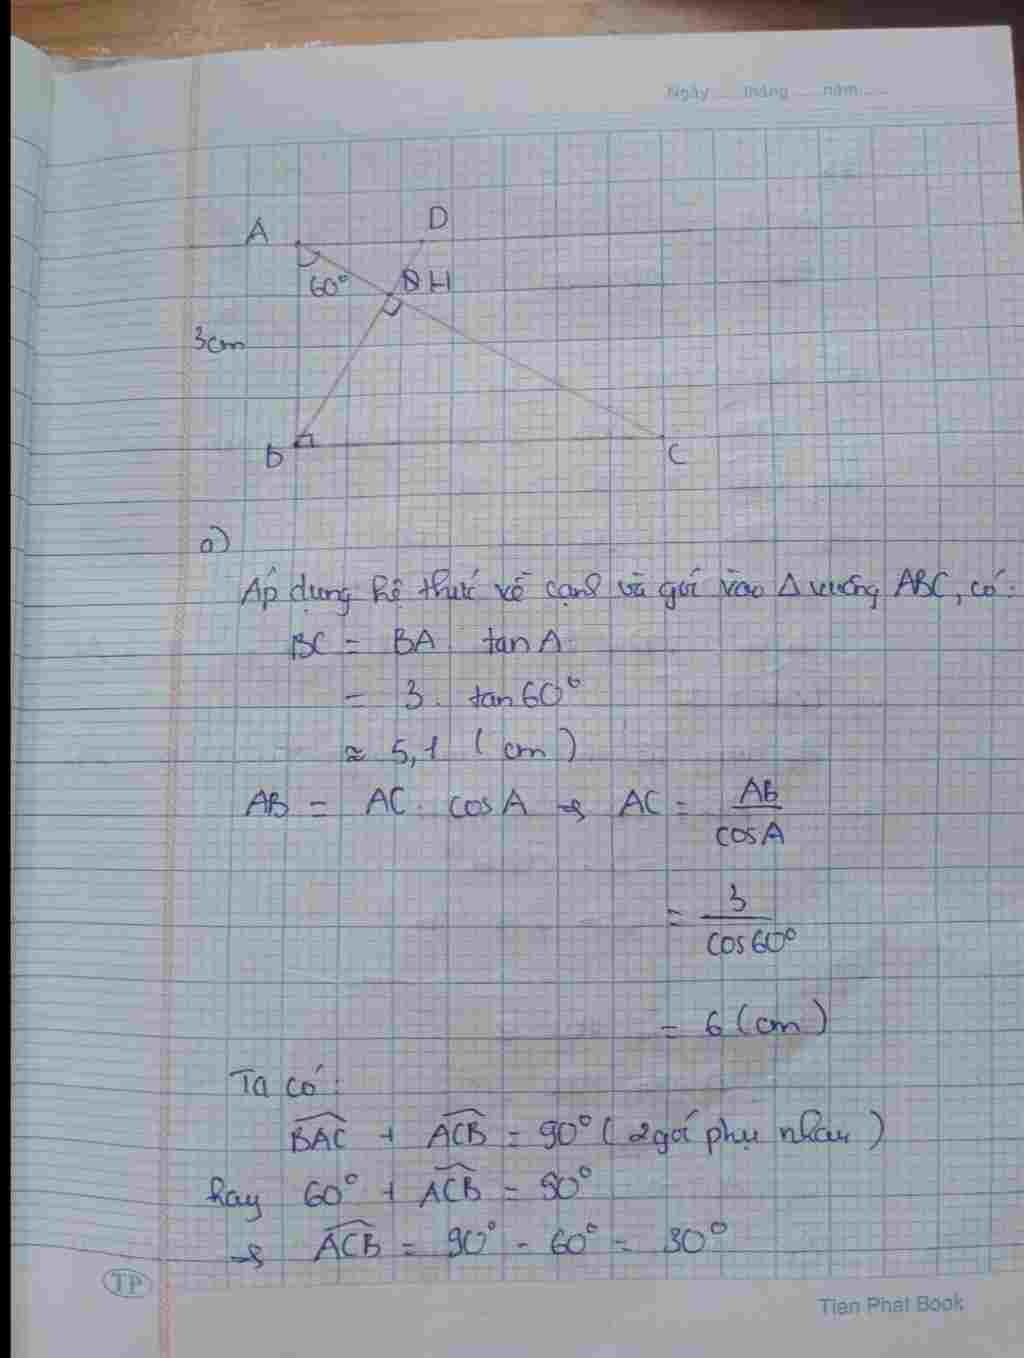 Ngày tháng năm
A D
60° H
3cm
B C
a)
Áp dụng hệ thức về cạnh và góc vào Δ vuông ABC, có:
BC = BA . tan A
= 3 . tan 60°
≈ 5,1 (cm)
AB = AC . cos A ⇒ AC = AB / cos A
= 3 / cos 60°
= 6 (cm)
Ta có:
BAC + ACB = 90° (2 góc phụ nhau)
hay 60° + ACB = 90°
⇒ ACB = 90° - 60° = 30°
TP
Tien Phat Book